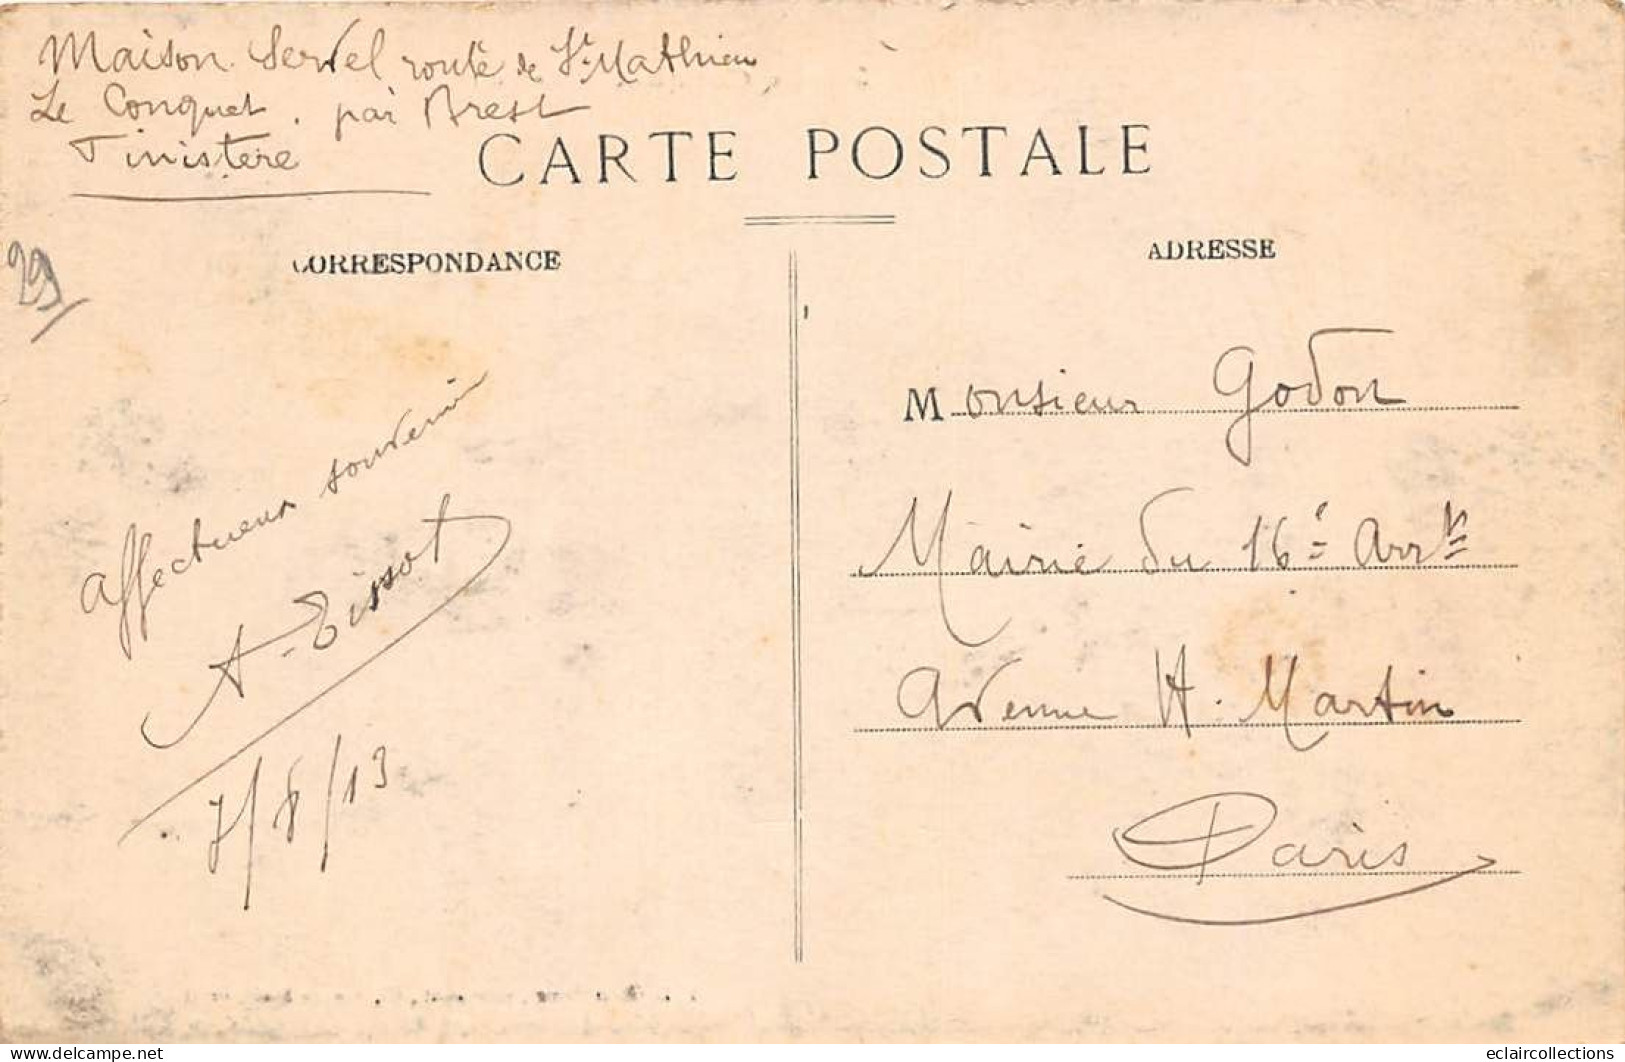 Maison Servel route de St Mathieu
Le Conquet. par Brest
Finistère
CARTE POSTALE
29
CORRESPONDANCE
ADRESSE
Affectueux souvenir
A. Tissot
7/8/13
Monsieur Godon
Mairie du 16e Arrt
Avenue H. Martin
Paris
eclaircollections